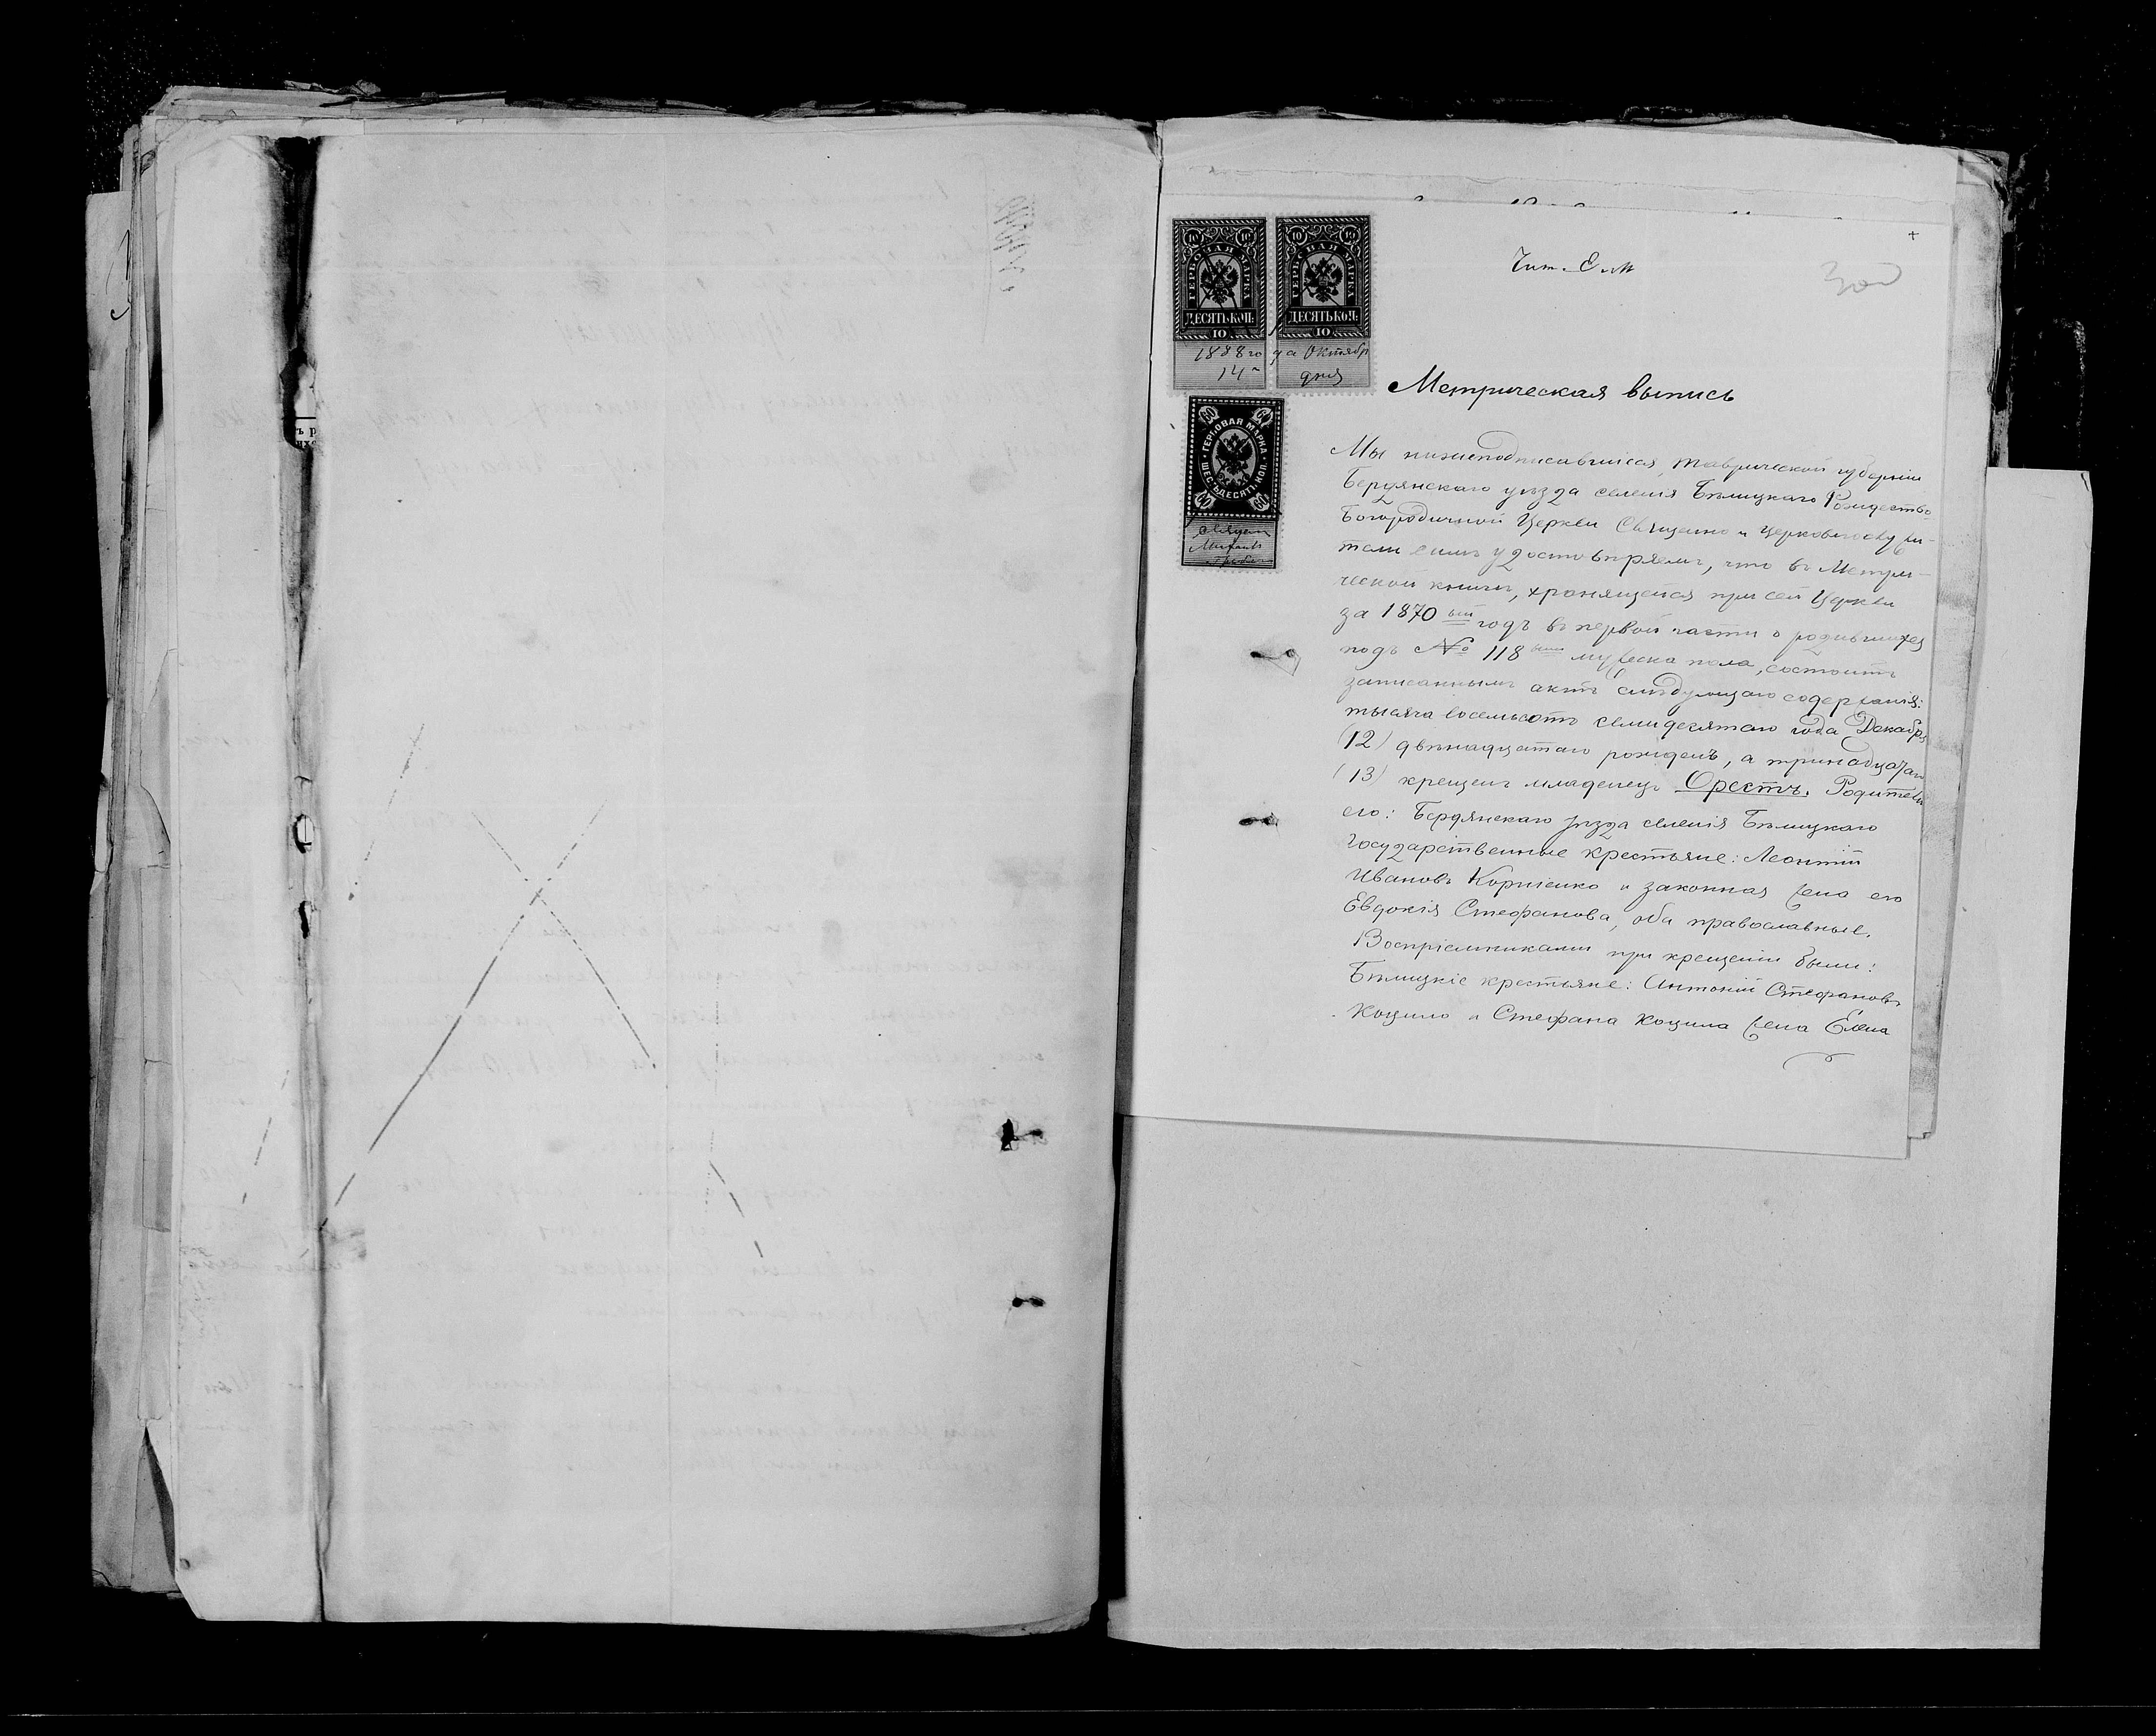 Метрическая выпись
Мы нижеподписавшіеся, Таврической губерніи
Бердянскаго уѣзда селенія Бѣлицкаго Рождество-
Богородичной Церкви Священно и церковнослужи-
тели симъ удостовѣряемъ, что въ Метри-
ческой книгѣ, хранящейся при сей Церкви
за 1870ый годъ въ первой части о родившихся
подъ № 118ымъ мужеска пола, состоитъ
записаннымъ актъ слѣдующаго содержанія:
тысяча восемьсотъ семидесятаго года Декабря
(12) двѣнадцатаго рожденъ, а тринадцатаго
(13) крещенъ младенецъ Орестъ. Родители
его: Бердянскаго уѣзда селенія Бѣлицкаго
государственные крестьяне: Леонтій
Ивановъ Корніенко и законная жена его
Евдокія Стефанова, оба православные.
Воспріемниками при крещеніи были:
Бѣлицкіе крестьяне: Антоній Стефановъ
Коцило и Стефана Коцила жена Елена
ГЕРБОВАЯ МАРКА
10 10
ДЕСЯТЬ КОП:
10
ГЕРБОВАЯ МАРКА
10 10
ДЕСЯТЬ КОП:
10
1888 года Октябр
14 дня
60 60
ГЕРБОВАЯ МАРКА
ШЕСТЬДЕСЯТЪ КОП.
60 60
Михаилъ